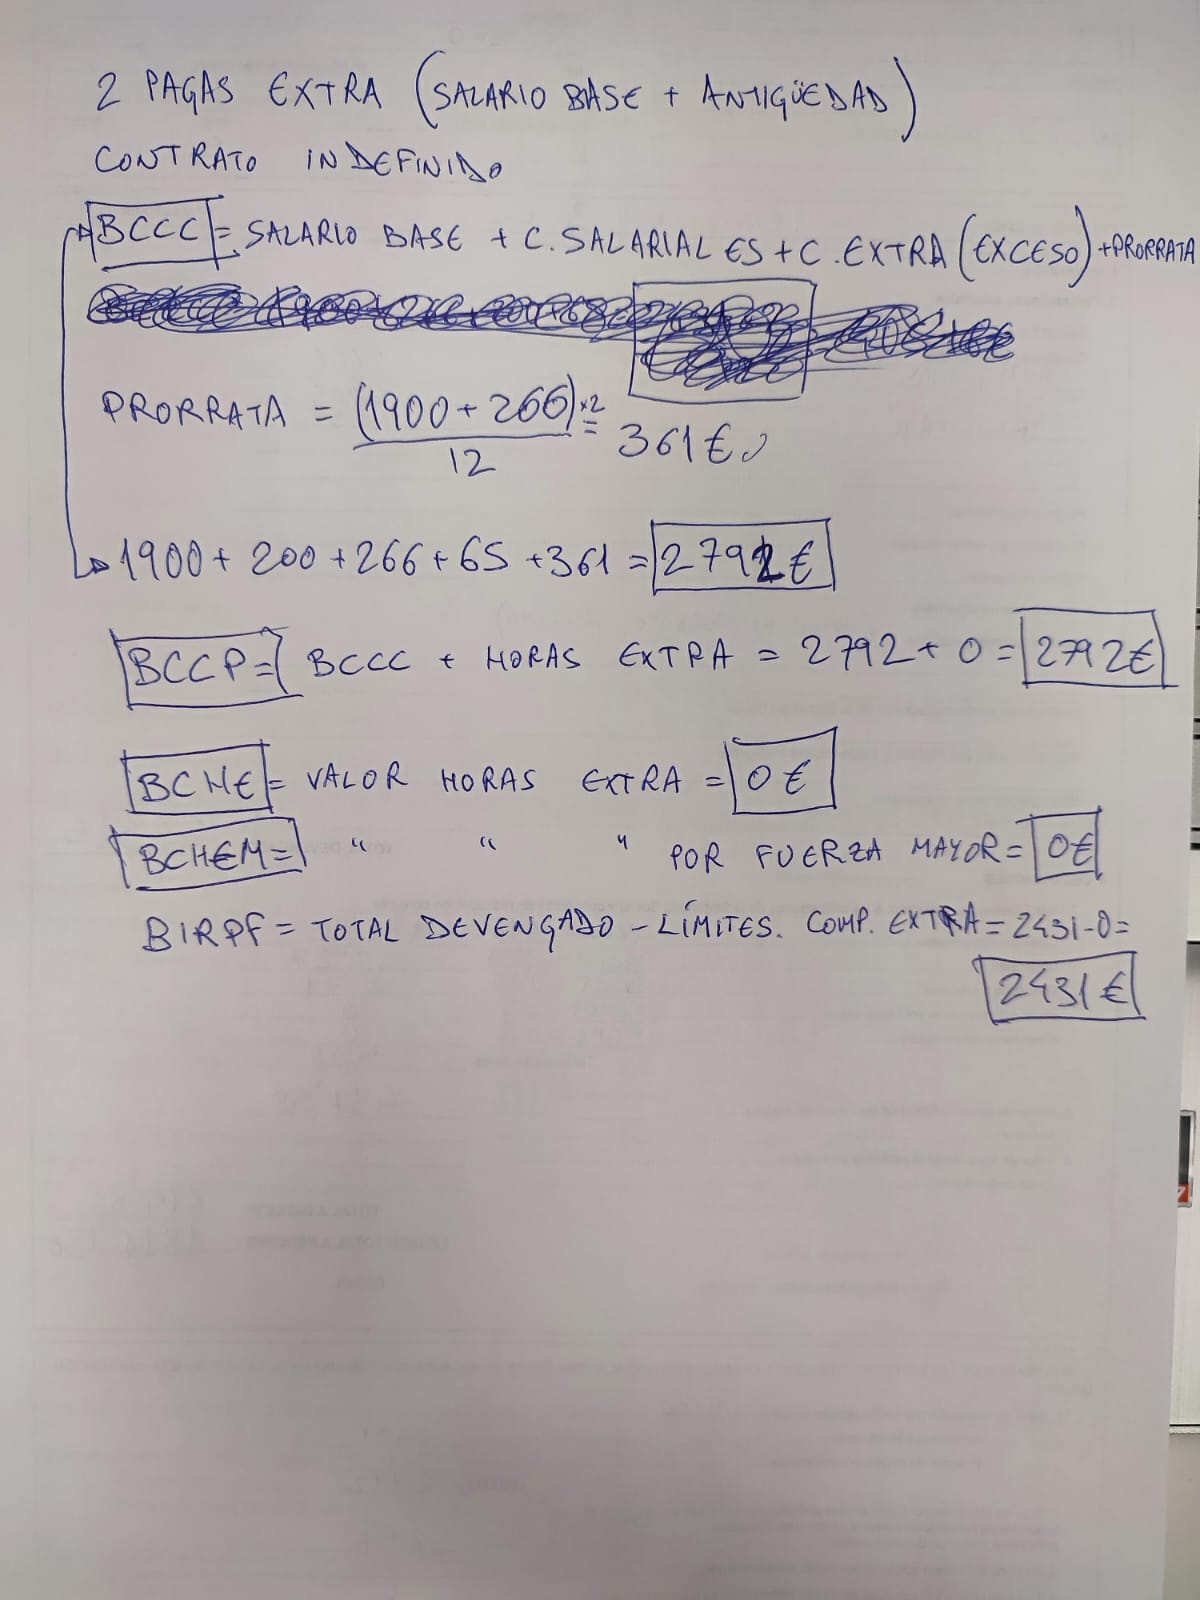 2 PAGAS EXTRA (SALARIO BASE + ANTIGÜEDAD)
CONTRATO INDEFINIDO
BCCC = SALARIO BASE + C. SALARIALES + C. EXTRA (EXCESO) + PRORRATA
PRORRATA = (1900 + 266) x2 / 12 = 361 €
1900 + 200 + 266 + 65 + 361 = 2792 €
BCCP = BCCC + HORAS EXTRA = 2792 + 0 = 2792 €
BCHE = VALOR HORAS EXTRA = 0 €
BCHEM = " " " POR FUERZA MAYOR = 0 €
BIRPF = TOTAL DEVENGADO - LÍMITES. COMP. EXTRA = 2431 - 0 =
2431 €